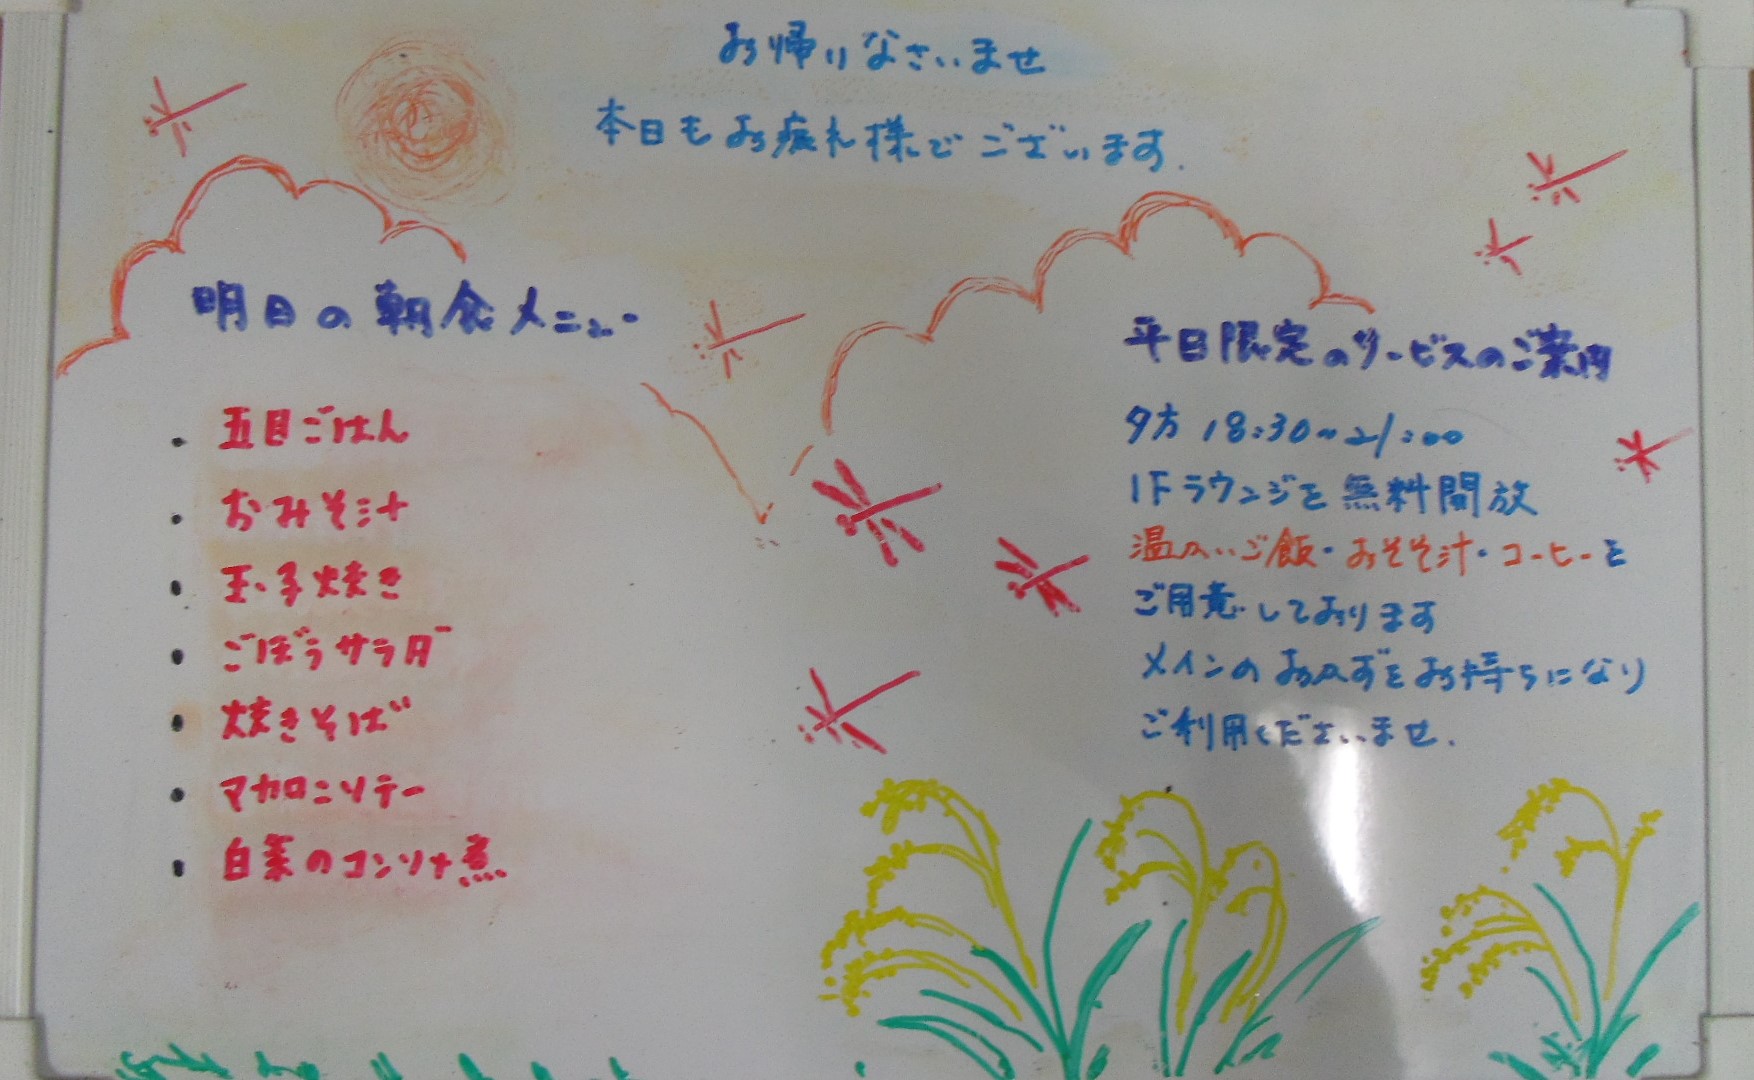 お帰りなさいませ
本日もお疲れ様でございます.
明日の朝食メニュー
・五目ごはん
・おみそ汁
・玉子焼き
・ごぼうサラダ
・焼きそば
・マカロニソテー
・白菜のコンソメ煮
平日限定のサービスのご案内
夕方 18:30~21:00
1Fラウンジを無料開放
温かいご飯・おそそ汁・コーヒーを
ご用意しております
メインのおかずをお持ちになり
ご利用くださいませ.